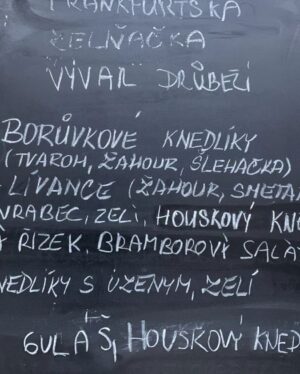 FRANKFURTSKÁ
ZELŇAČKA
VÝVAR DRŮBEŽÍ
BORŮVKOVÉ KNEDLÍKY
(TVAROH, ŽAHOUR, ŠLEHAČKA)
LÍVANCE (ŽAHOUR, SMETAN
VRABEC, ZELÍ, HOUSKOVÝ KN
Ý ŘÍZEK, BRAMBOROVÝ SALÁ
NEDLÍKY S UZENÝM, ZELÍ
GULÁŠ, HOUSKOVÝ KNED